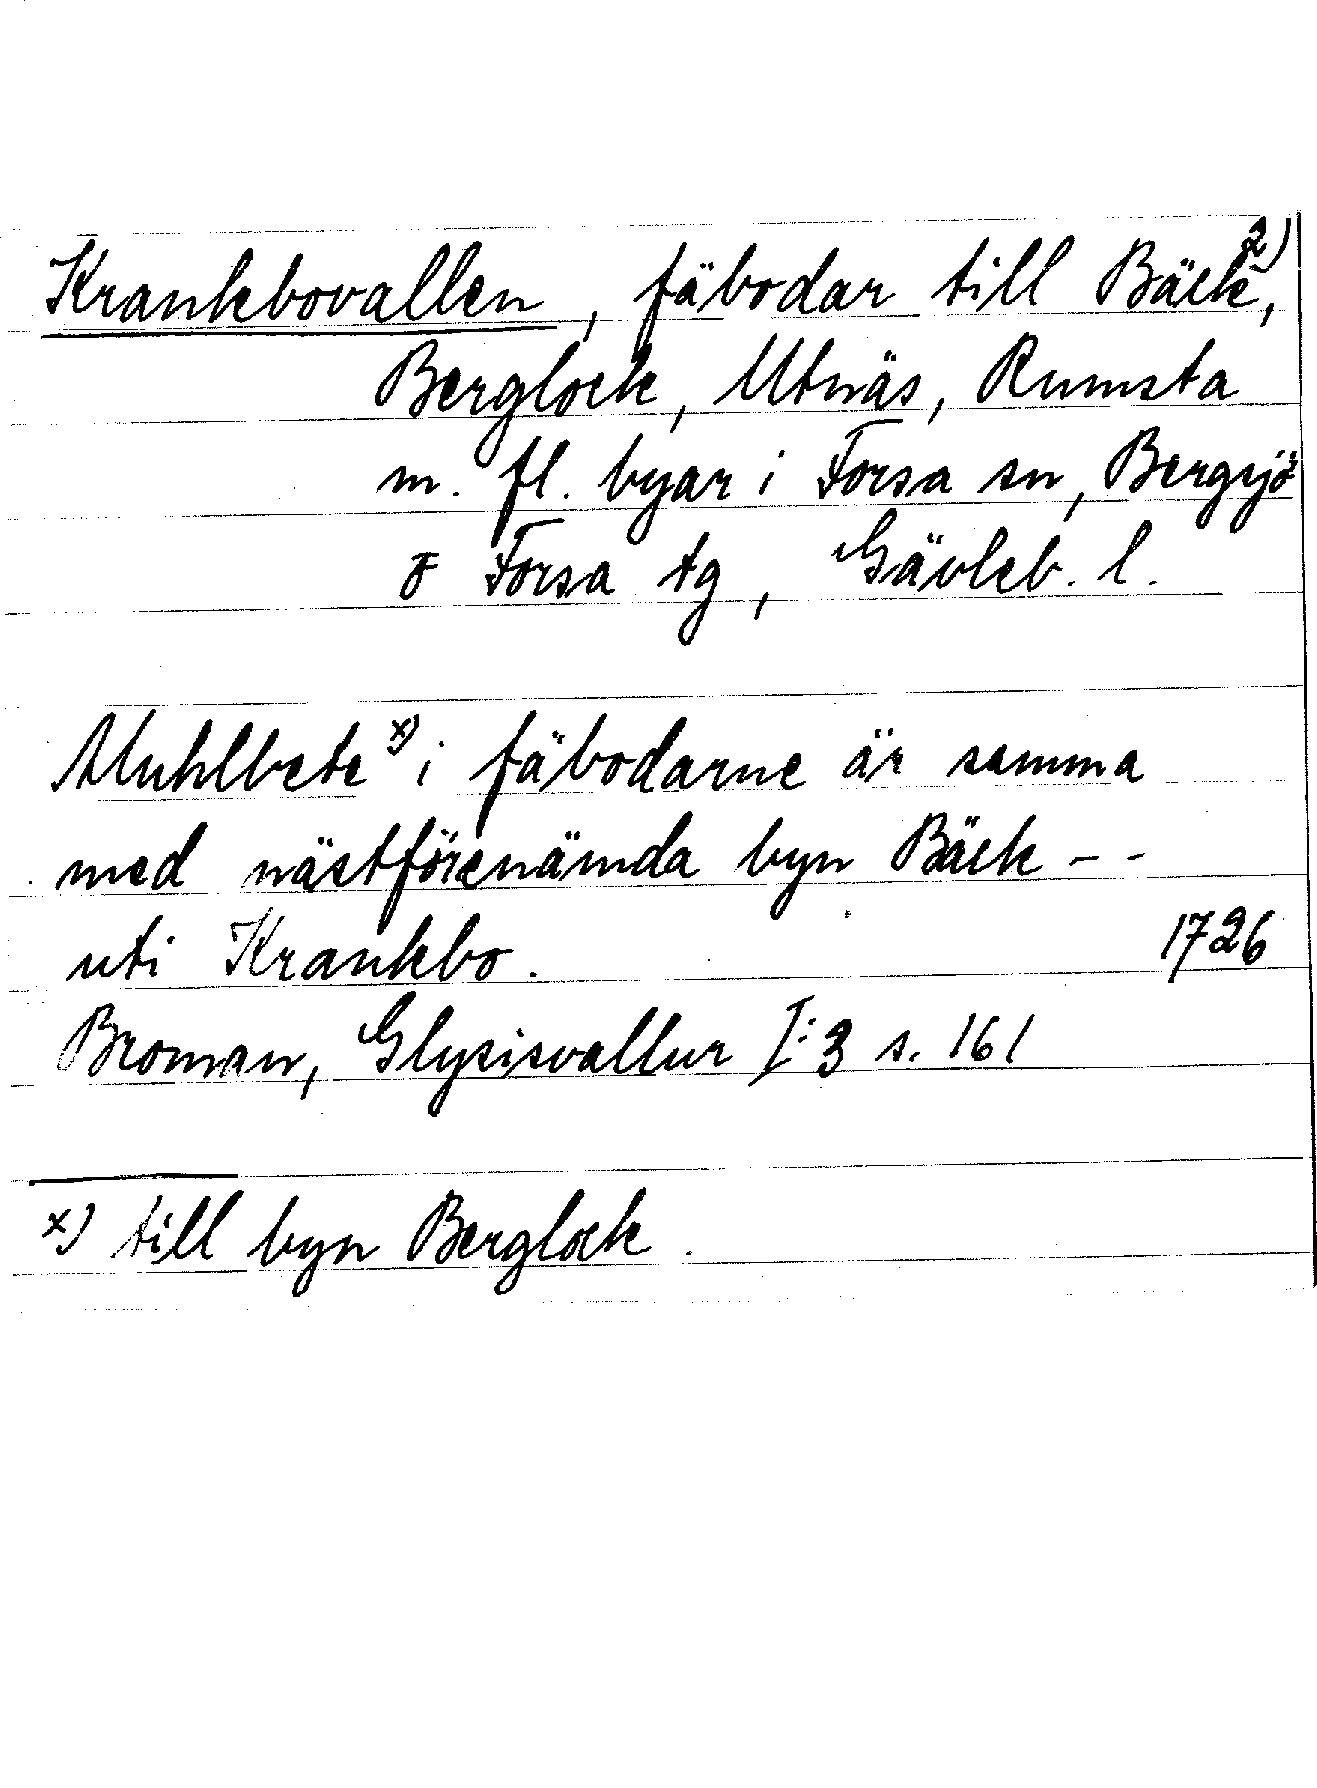 Krankbovallen, fäbodar till Bäck²⁾,
Berglock, Utnäs, Rumsta
m. fl. byar i Forsa sn, Bergsjö
o Forsa tg, Gävleb. l.
Muhlbete ˣ⁾ i fäbodarne är samma
med nästförenämda byn Bäck - -
uti Krankbo. 1726
Broman, Glysisvallur I:3 s. 161
x) till byn Berglock.